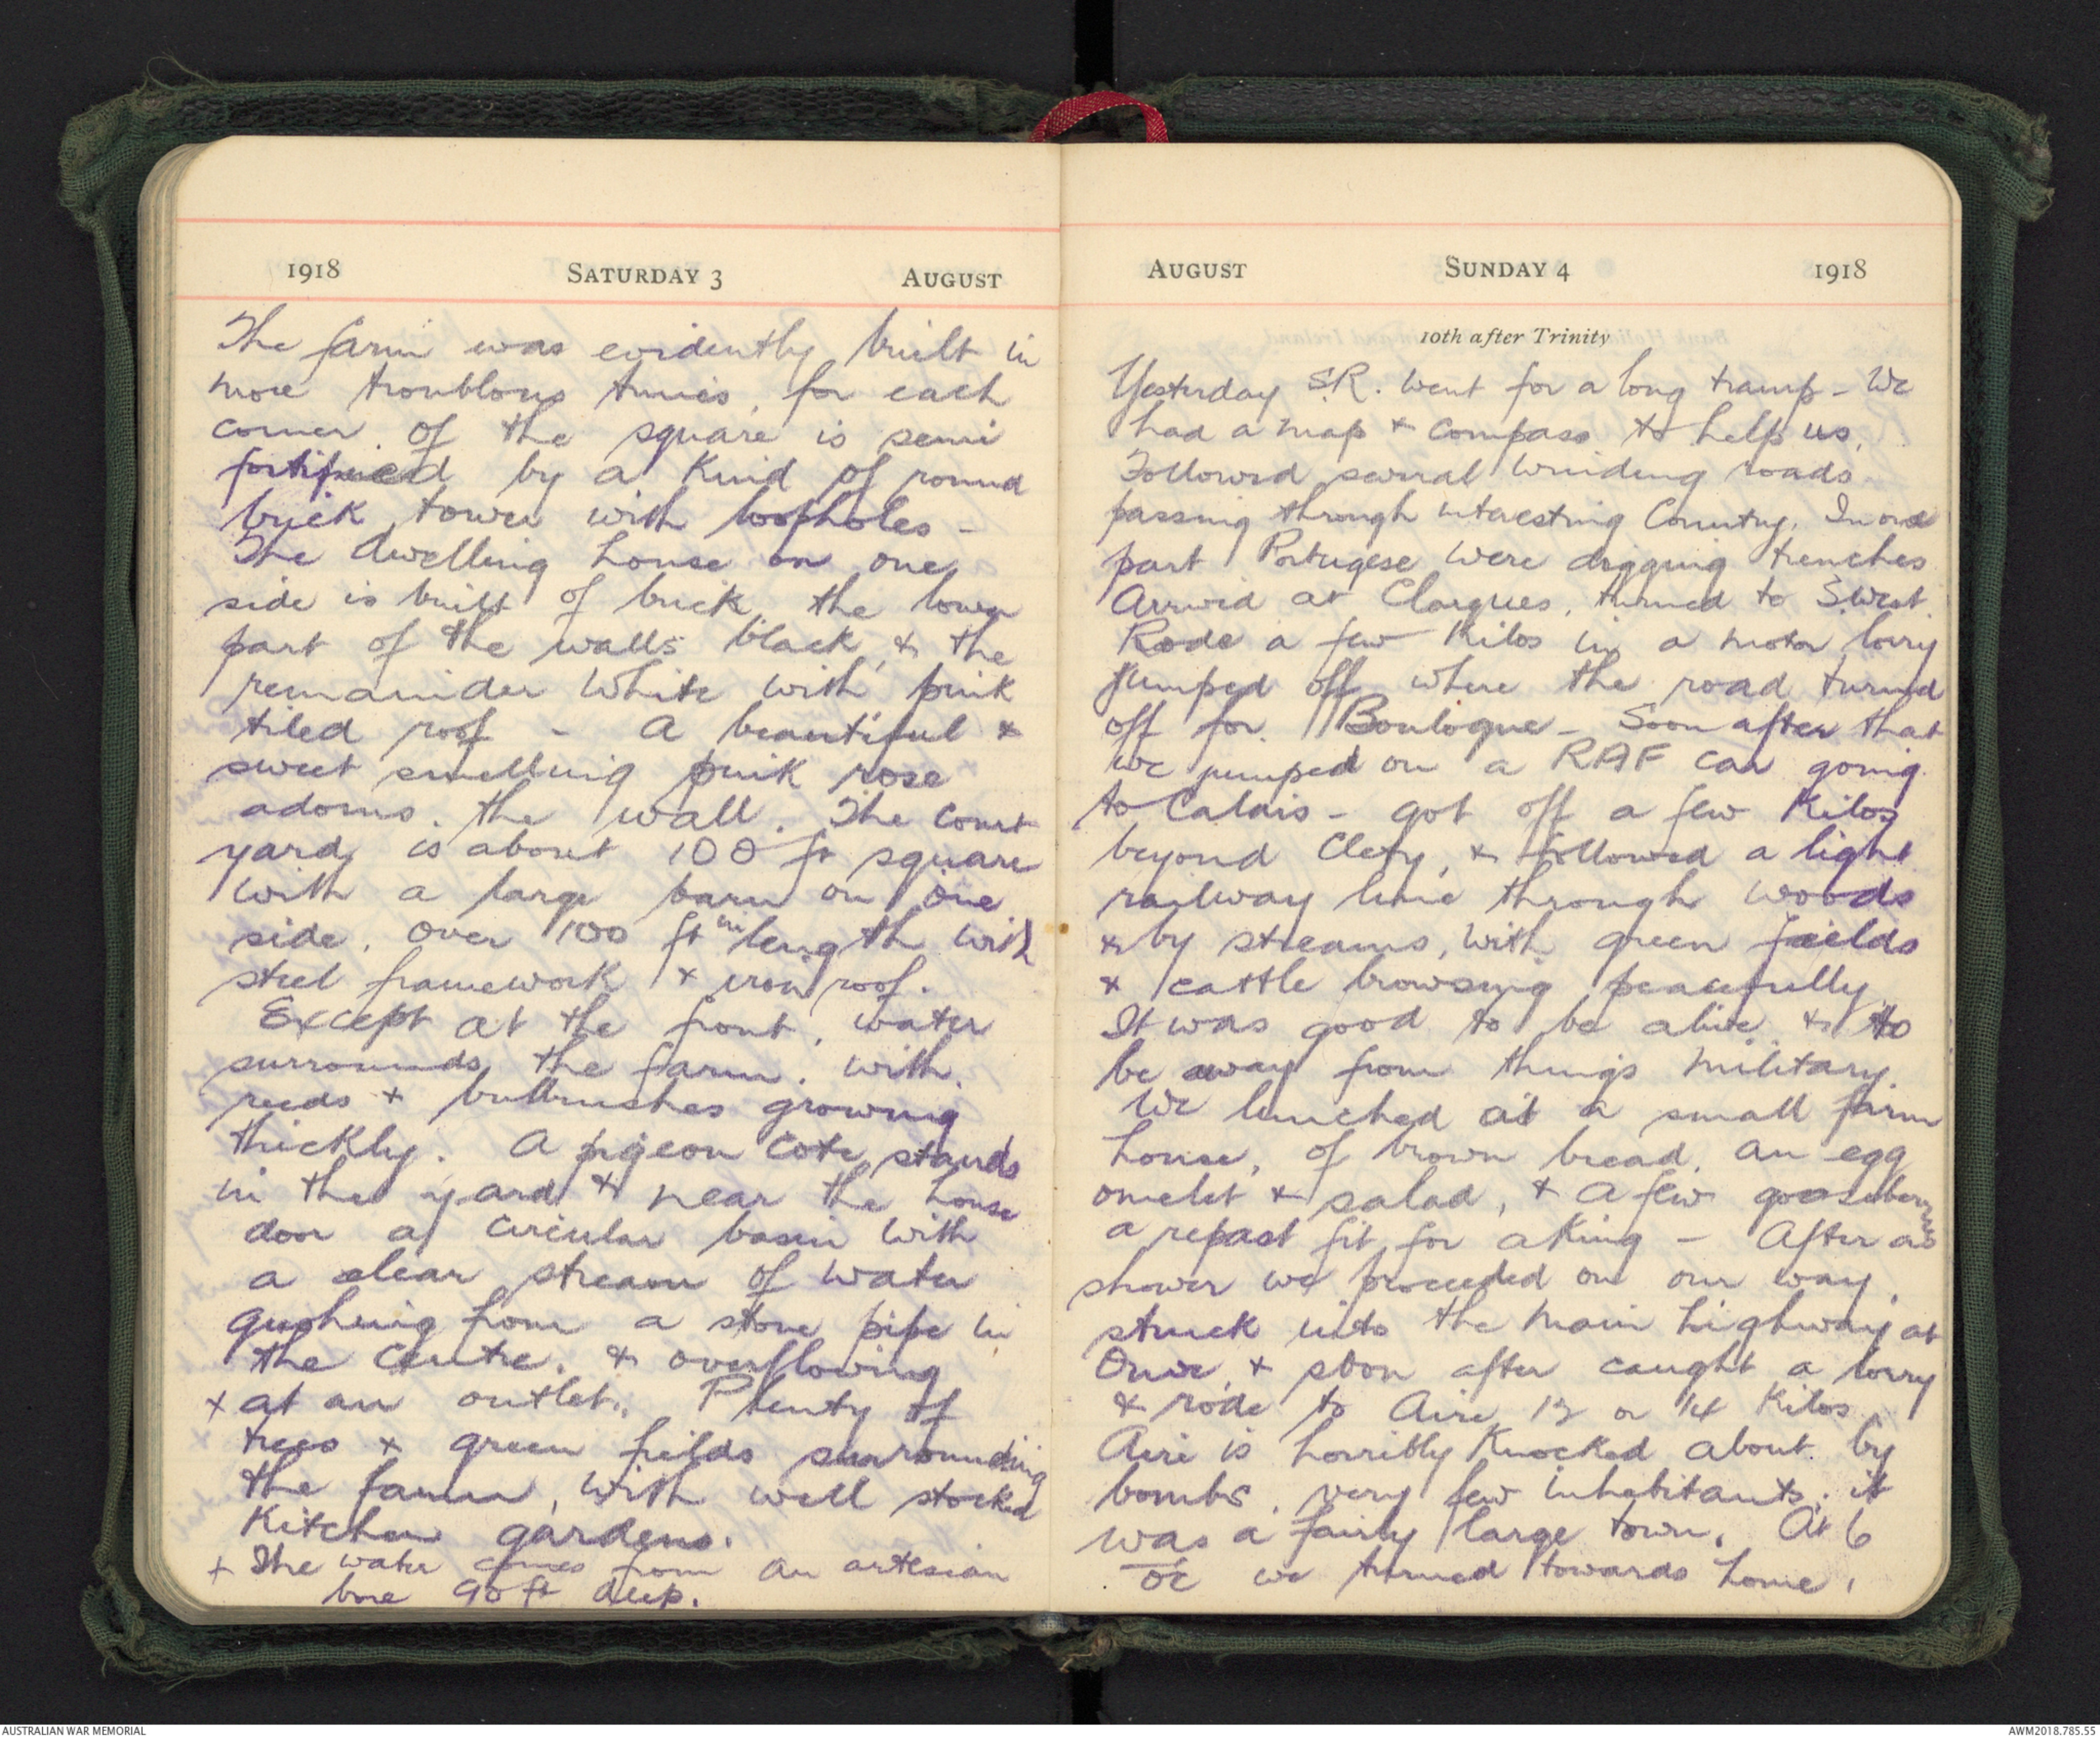 1918 SATURDAY 3 AUGUST
The farm was evidently built in
more troublous times, for each
corner of the square is semi
fortified by a kind of round
brick tower with loopholes -
The dwelling house on one
side is built of brick, the lower
part of the walls black, & the
remainder white with pink
tiled roof - A beautiful &
sweet smelling pink rose
adorns the wall. The court
yard is about 100 ft square
with a large barn on one
side, over 100 ft in length with
steel framework & iron roof.
Except at the front, water
surrounds the farm, with
reeds & bullrushes growing
thickly. A pigeon cote stands
in the yard & near the house
door a circular basin with
a clear stream of water
gushing from a stone pipe in
the centre, & overflowing
+ at an outlet. Plenty of
trees & green fields surrounding
the farm, with well stocked
Kitchen gardens.
+ The water comes from an artesian
bore 90 ft deep.
AUGUST SUNDAY 4 1918
10th after Trinity
Yesterday S.R. went for a long tramp - We
had a map & compass to help us,
Followed several winding roads
passing through interesting Country. In one
part Portugese were digging trenches
Arrived at Clarques, turned to S.West.
Rode a few Kilos in a motor lorry
jumped off where the road turned
off for Boulogne - Soon after that
we jumped on a RAF car going
to Calais - got off a few Kilos
beyond Clety, & followed a light
railway line through woods
& by streams, with green fields
& cattle browsing peacefully
It was good to be alive & to
be away from things military.
We lunched at a small farm
house, of brown bread, an egg
omelet & salad, & a few gooseberries
a repast fit for a King - After a
shower we proceeded on our way,
struck into the main highway at
once, & soon after caught a lorry
& rode to Aire 13 or 14 Kilos.
Aire is horribly Knocked about by
bombs, very few inhabitants, it
was a fairly large town. At 6
oc we turned towards home,
AUSTRALIAN WAR MEMORIAL
AWM2018.785.55